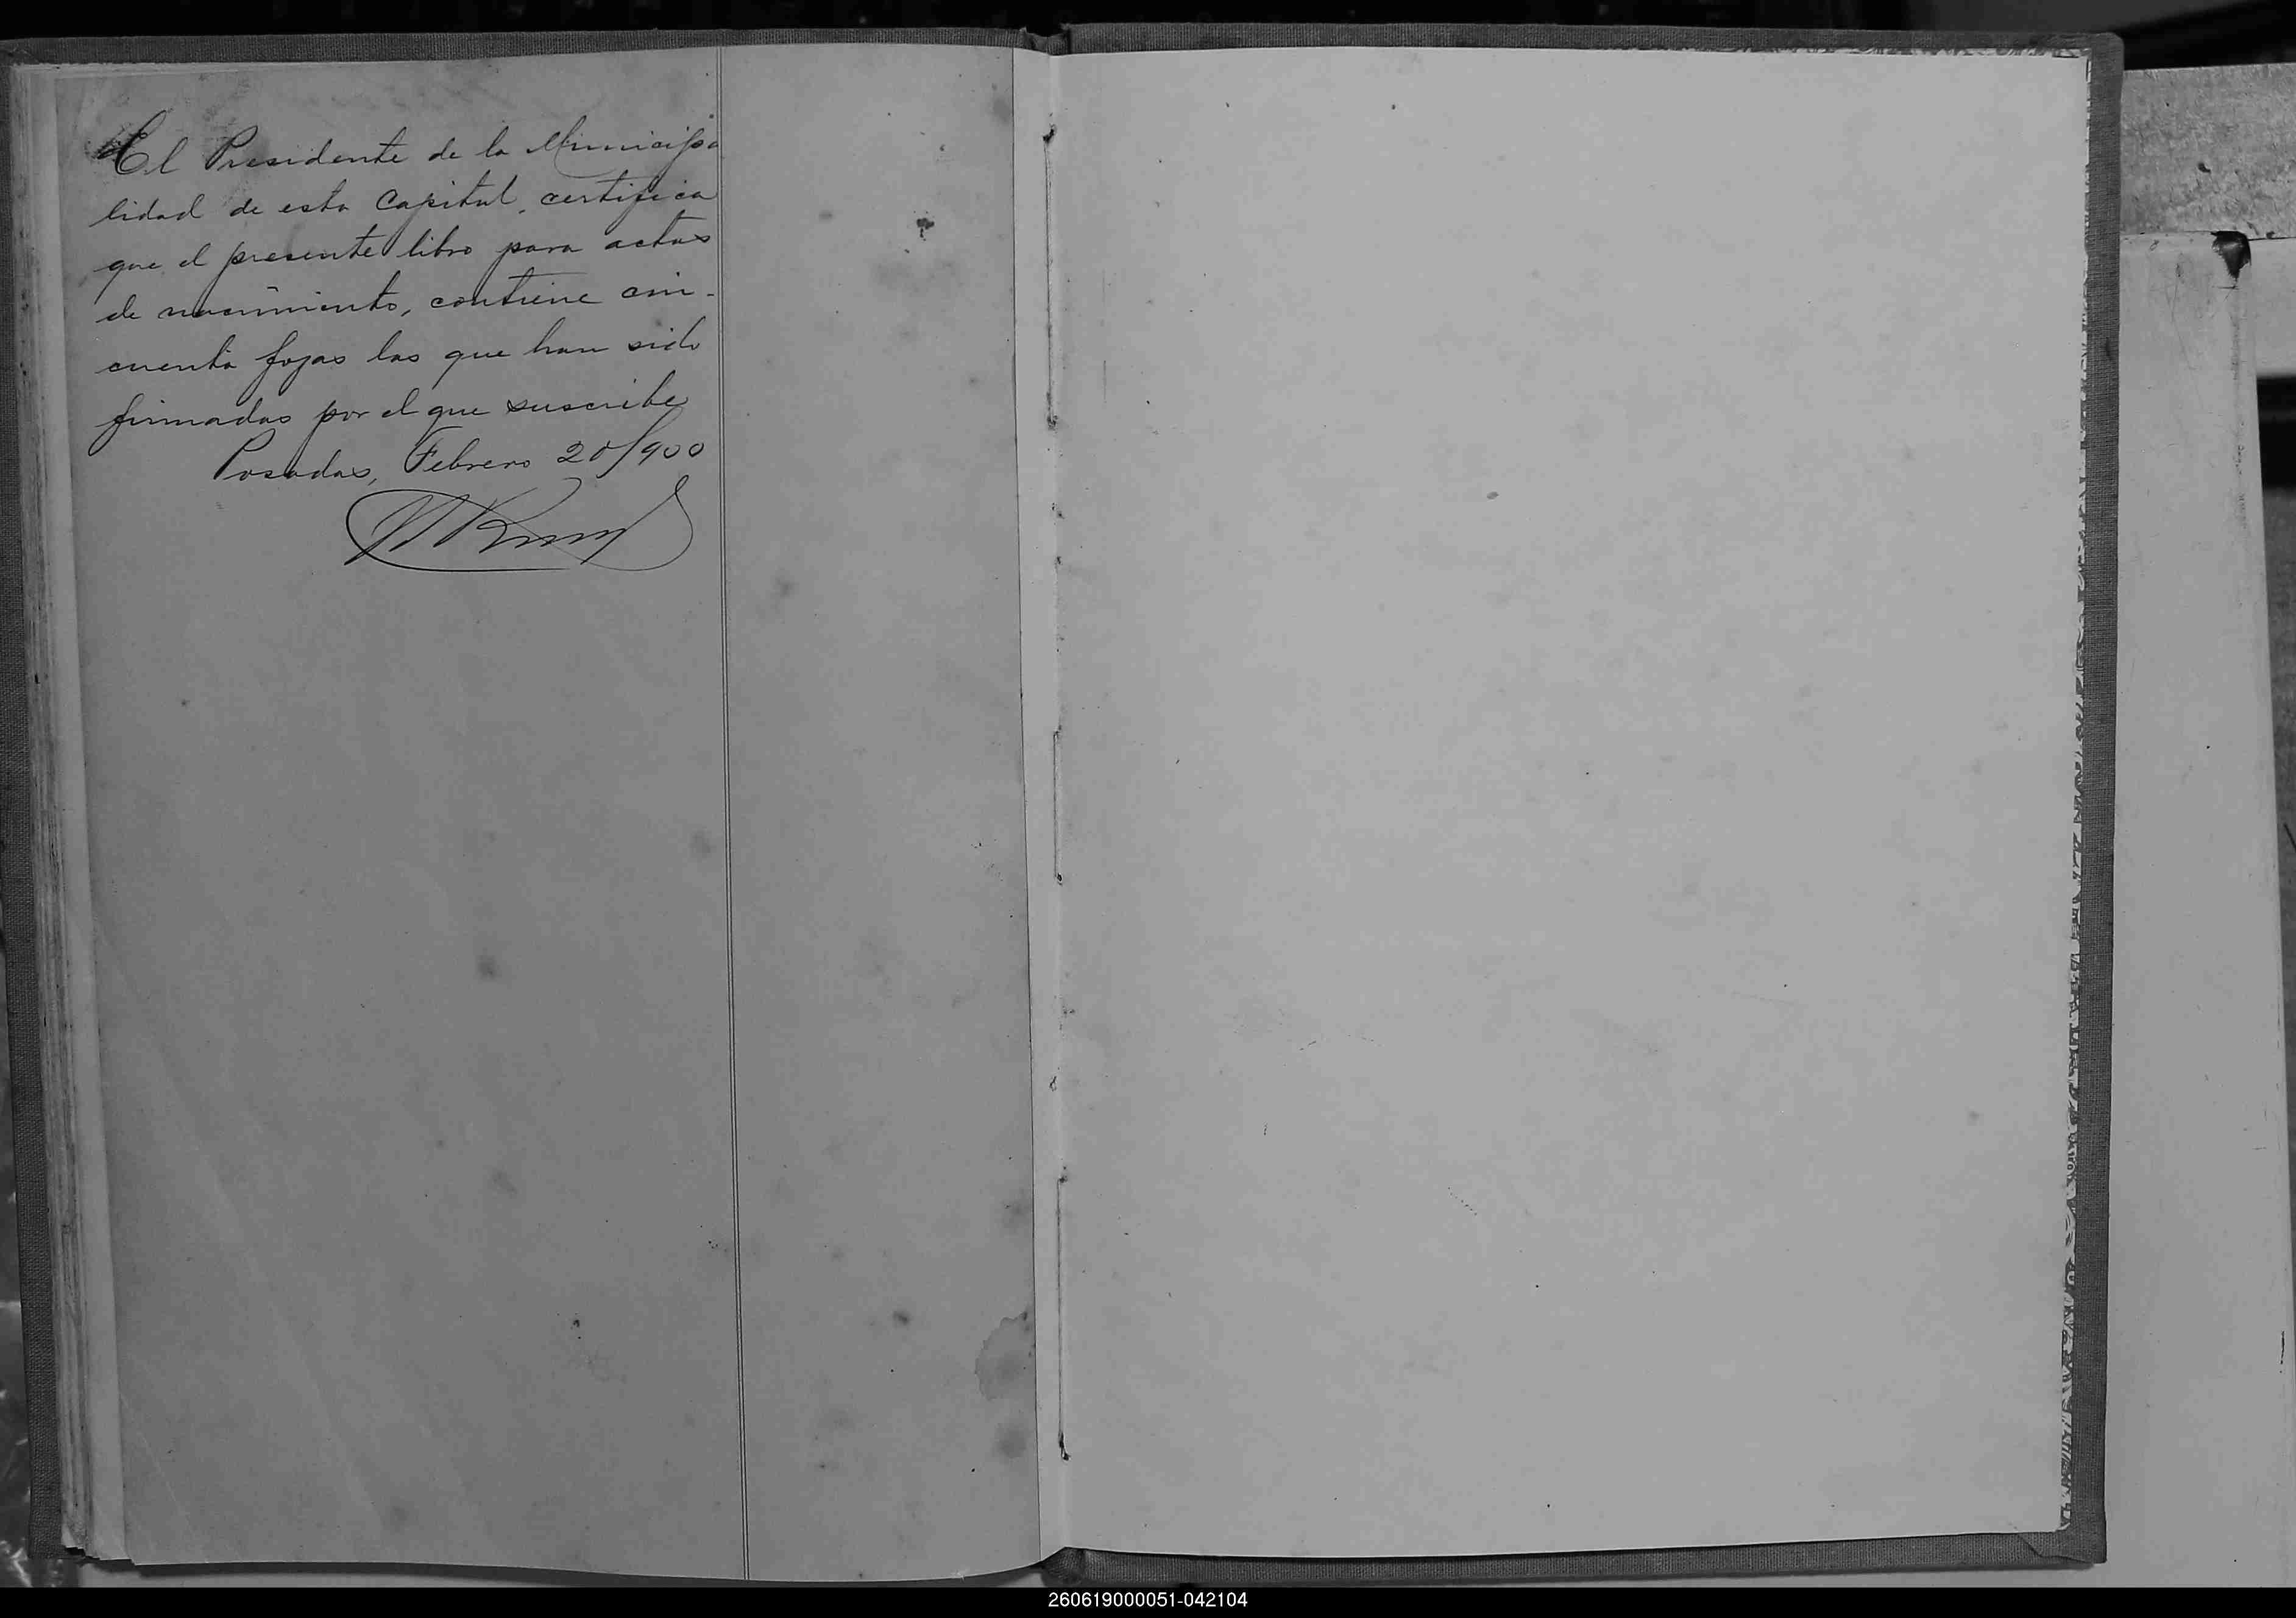 El Presidente de la Municipa
lidad de esta Capital, certifica
que el presente libro para actas
de nacimiento, contiene cin-
cuenta fojas las que han sido
firmadas por el que suscribe
Posadas, Febrero 20/900
260619000051-042104